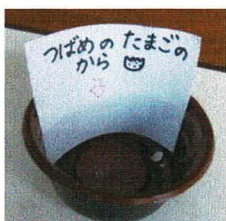 つばめの たまごの
から